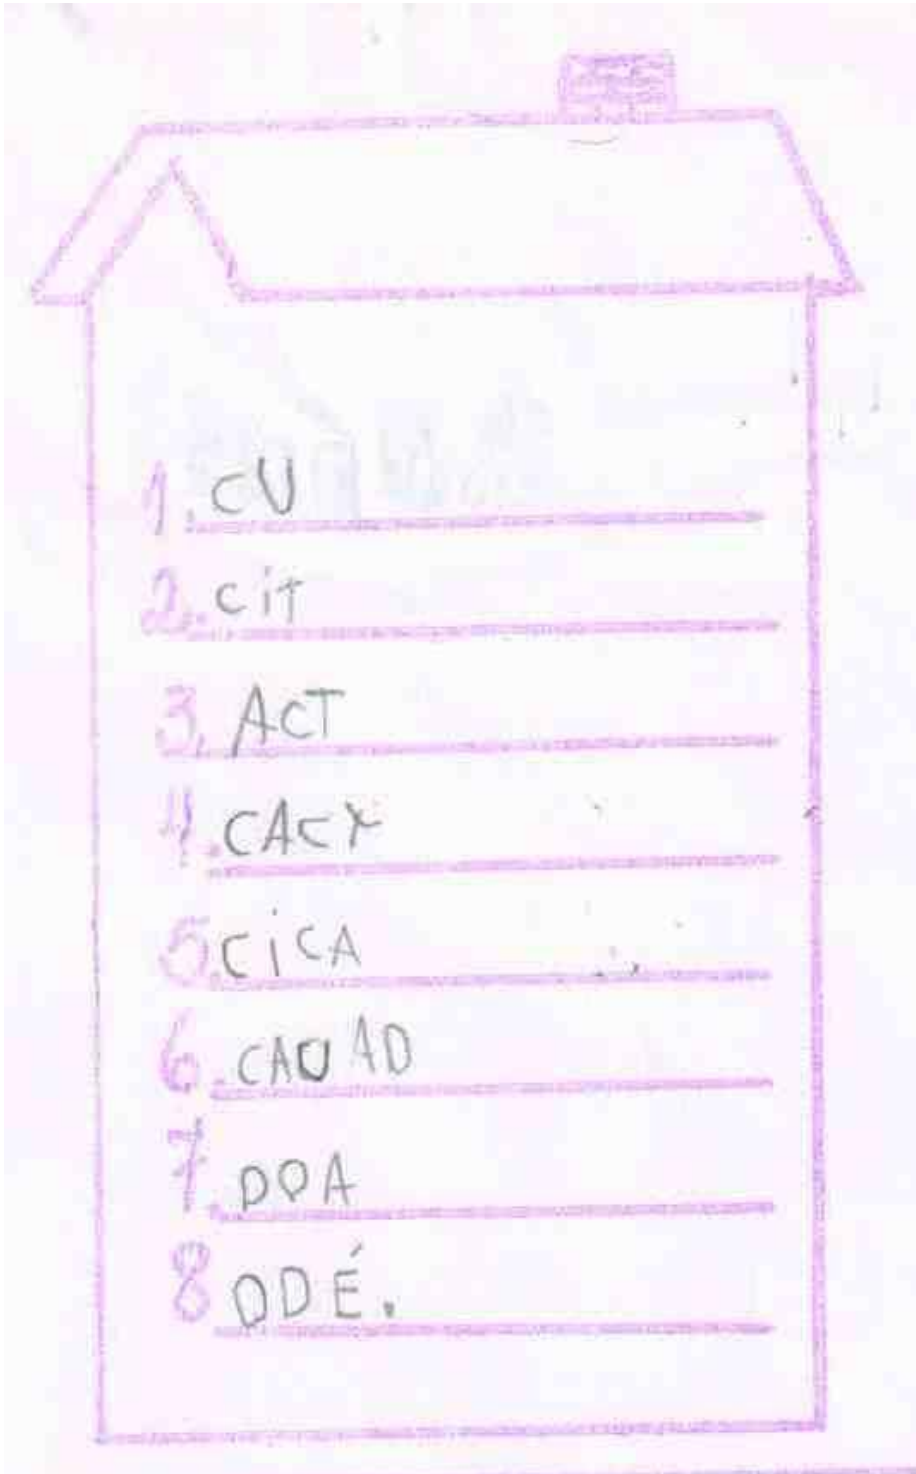 1. CU
2. cit
3. ACT
4. CACX
5. CiCA
6. CAUAD
7. DOA
8 ODÉ.